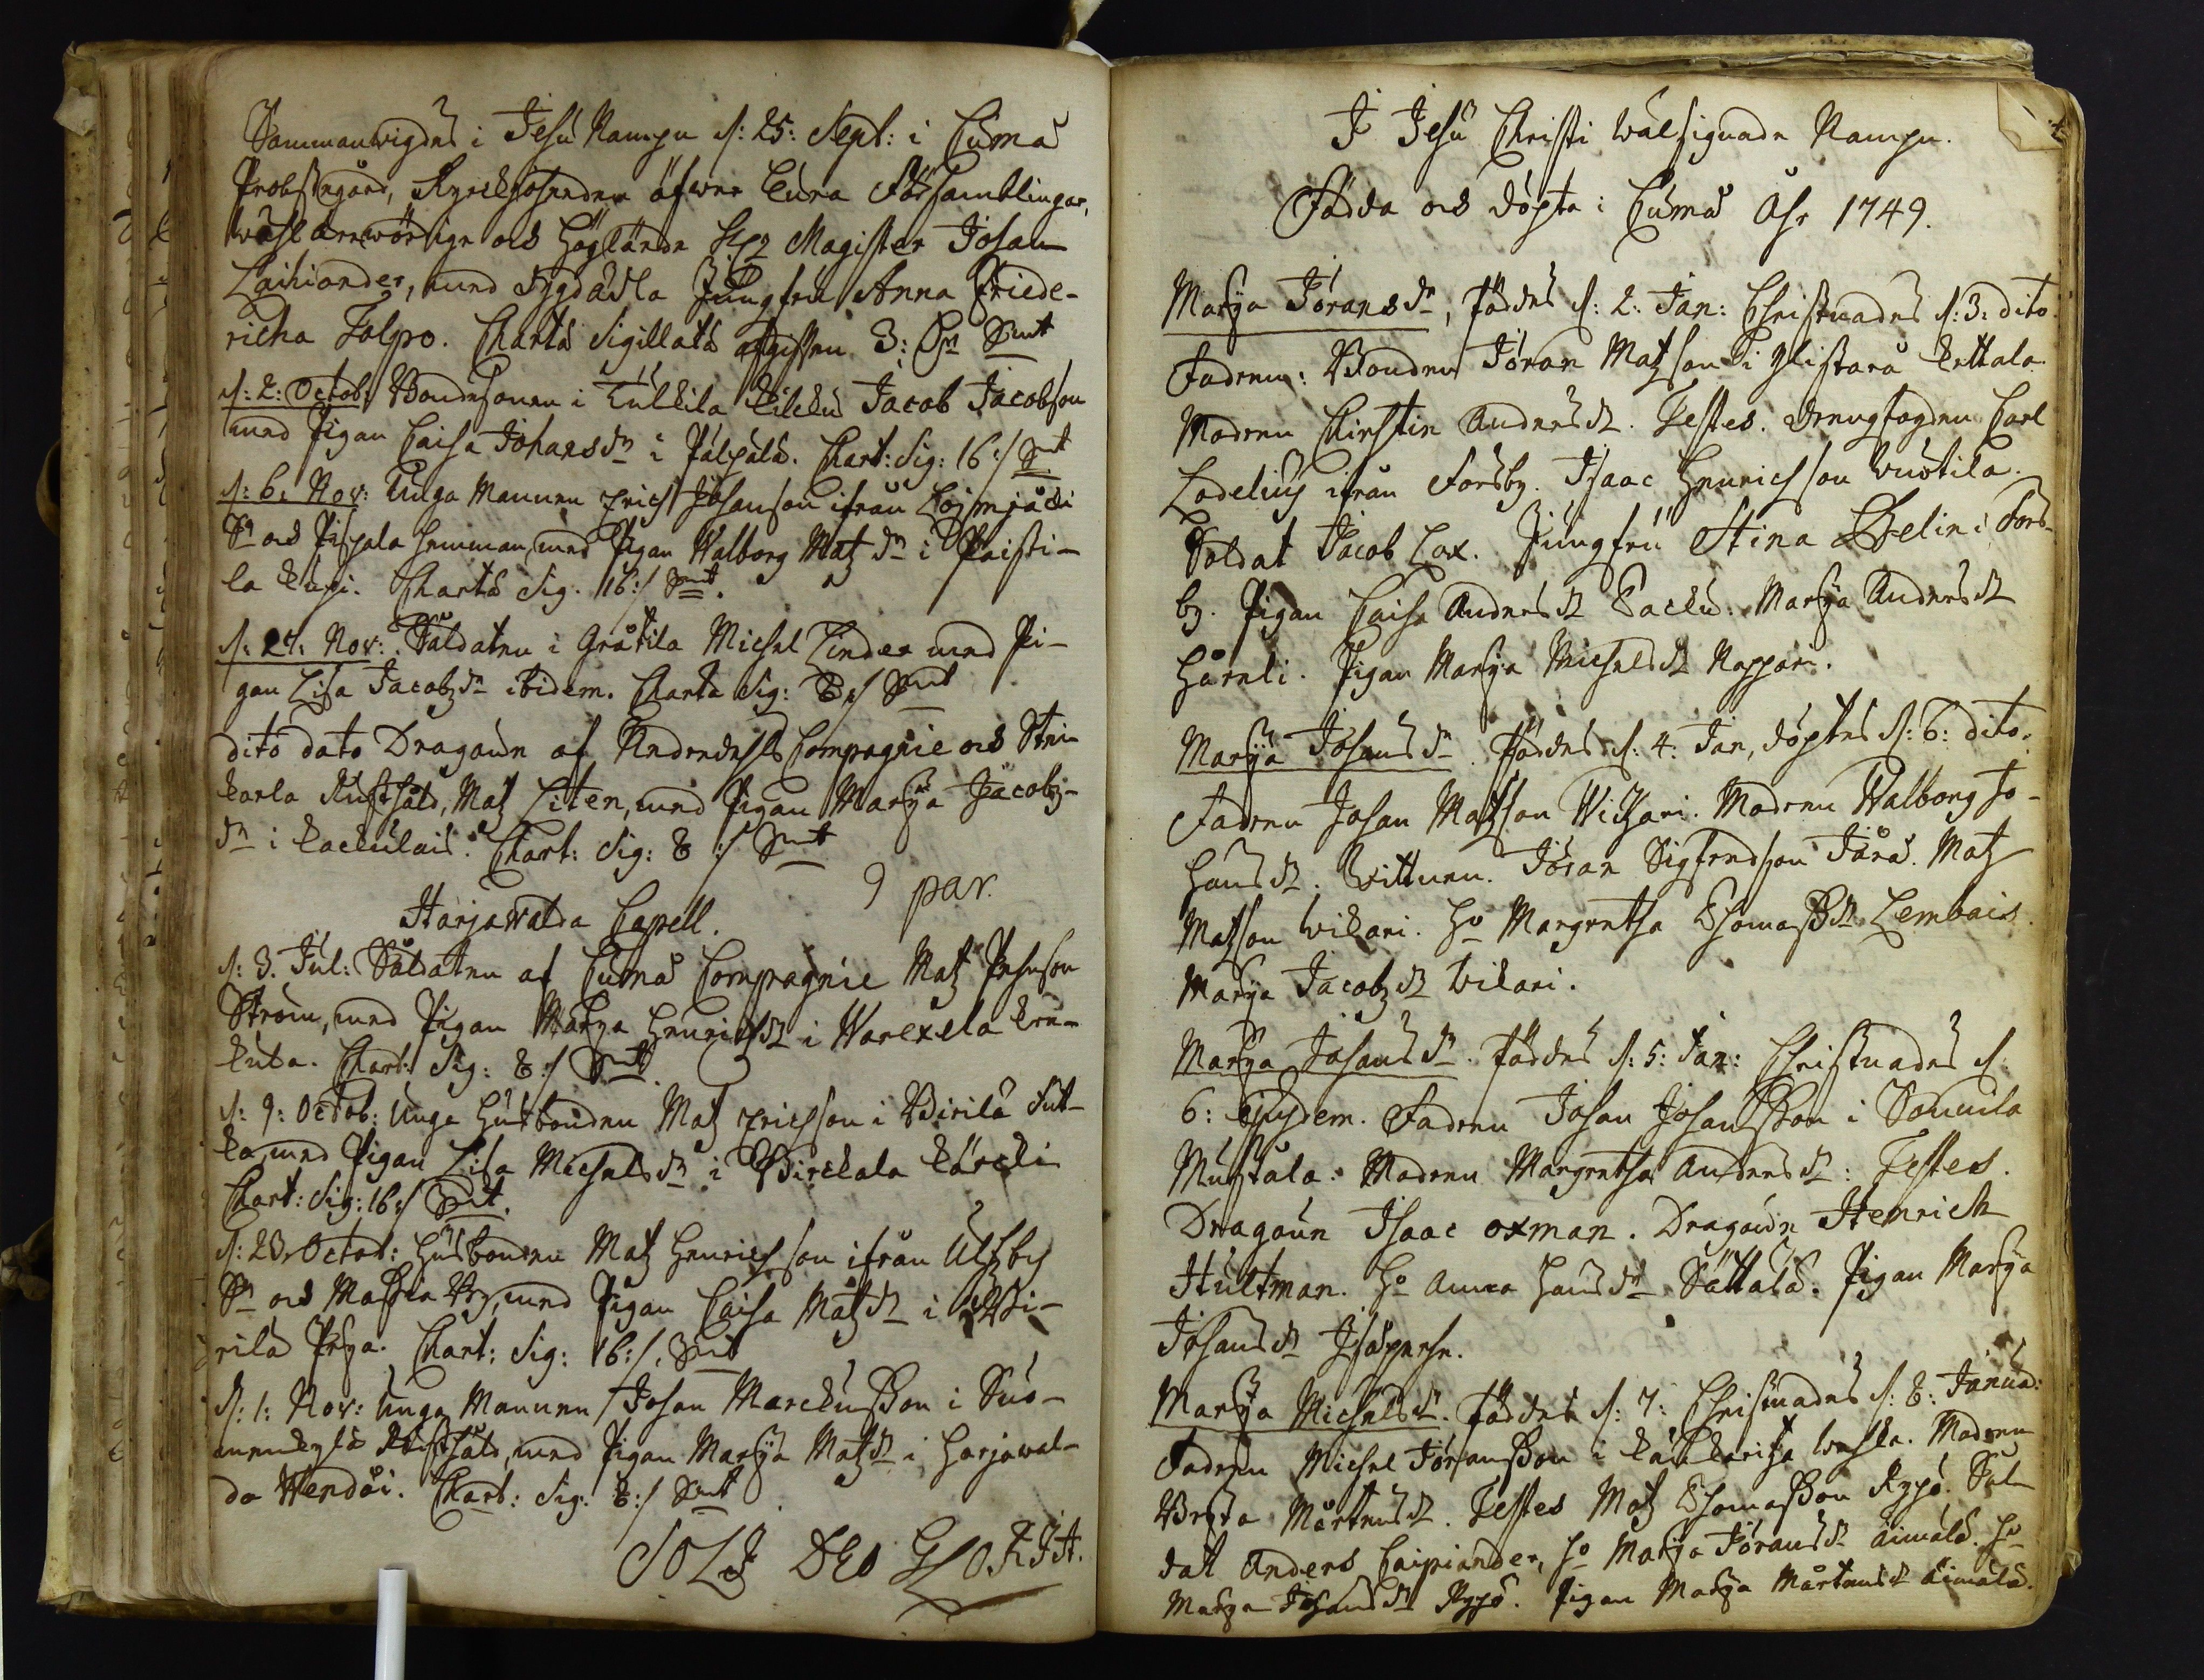 Sammanwigdes i Jesu Nampn d: 25: Sept: i Eura
Probstegård, Kyrckioherden öfwer Eura Församblingar,
wähl ärewördige och Höglärde H:r Magister Johan
Laihiander, med dygdädla Jungfru Anna Friede-
richa Polpro. Charta Sigillata afgiften 3: Dr Smt
d: 2: Octob: Bondesonen i Kulkila Kilcku Jacob Jacobson
med Pigan Caisa Johansdr i Pälpälä. Chart: Sig: 16:/ Smt
d: 6: Nov: Unga Mannen Erich Johanson ifrån
Sn och Pispala hemman, med Pigan Walborg Matzdr i Paisti-
la Kupi. Charta Sig. 16:/ Smt.
d: 27: Nov: Såldaten i Gråtila Michel Linder med Pi-
gan Lisa Jacobzdr ibidem. Charta Sig: 8:/ Smt
dito dato Dragoun af Compagnie och Stei-
karla Rusthåld, Matz Liten, med Pigan Marja Jacobz-
dr i Kackulais. Chart: Sig: 8:/ Smt
9 par.
Harjawalda Capell.
d: 3. Jul: Såldaten af Eura Compagnie Matz Pehrson
Ström, med Pigan Marja Henrichsdr i Harexela Kru-
kuta. Chart: Sig: 8:/ Smt.
d: 9: Octob: Unga Husbonden Matz Erichson i Pirilä Sut-
ka, med Pigan Lisa Michelsdr i Pirckala Kärcki
Chart: Sig: 16:/ Smt.
d: 23. Octob: Husbonden Matz Henrichson ifrån Ulfzby
Sn och Massia By, med Pigan Caisa Matzdr i Pi-
rilä Prya. Chart: Sig: 16:/. Smt
d: 1: Nov: Unga Mannen Johan Marckusson i Suo-
menkylä Rusthåld, med Pigan Marja Matzdr i Harjawal-
da Hendåi. Chart: Sig: 8:/ Smt
SOLI DEO GLORIA.
I Jesu Christi wälsignade Nampn.
Födda och döpta i Eura Åhr 1749.
Marja Jöransdr, föddes d: 2: Jan: Christnades d: 3: dito.
Fadren: Bonden Jöran Matzson i Ylistara Kettala.
Modren Chirstin Andersdr. Testes. Drengfogden Carl
Lodelius ifrån Forsby. Isaac Henrichson Wuotila.
Soldat Jacob Lax. Jungfru Stina Belin i Fors-
by. Pigan Caisa Andersdr Packu. Marja Andersdr
Hårnli. Pigan Marja Michelsdr Nappari.
Marja Johansdr. föddes d: 4: Jan, döptes d: 6: dito.
Fadren Johan Matzson Wickari. Modren Walborg Jo-
hansdr. Wittnen. Jöran Sigfredson Jårä. Matz
Matzson Wikari. Ho Margretha Thomasdr Lembais.
Marja Jacobzdr Wikari.
Marja Johansdr. föddes d: 5: Jan: Christnades d:
6: Ejusdem. Fadren Johan Johansson i Sonnila
Mustala. Modren Margretha Andersdr: Testes.
Dragoun Isaac oxman. Dragoun Henrich
Hultman. Ho Anna Hansdr Sättälä. Pigan Marja
Johansdr Isoperhe.
Marja Michelsdr. föddes d: 7: Christnades d: 8: Januar:
Fadren Michel Jöransson i Kaukaritza Wahla. Modren
Brita Mårtensdr. Testes Matz Thomasson Rypö. Sol-
dat Anders Caipiander, Ho Marja Jöransdr äimälä. Ho
Marja Johansdr Rypö. Pigan Marja Mårtensdr äimälä.